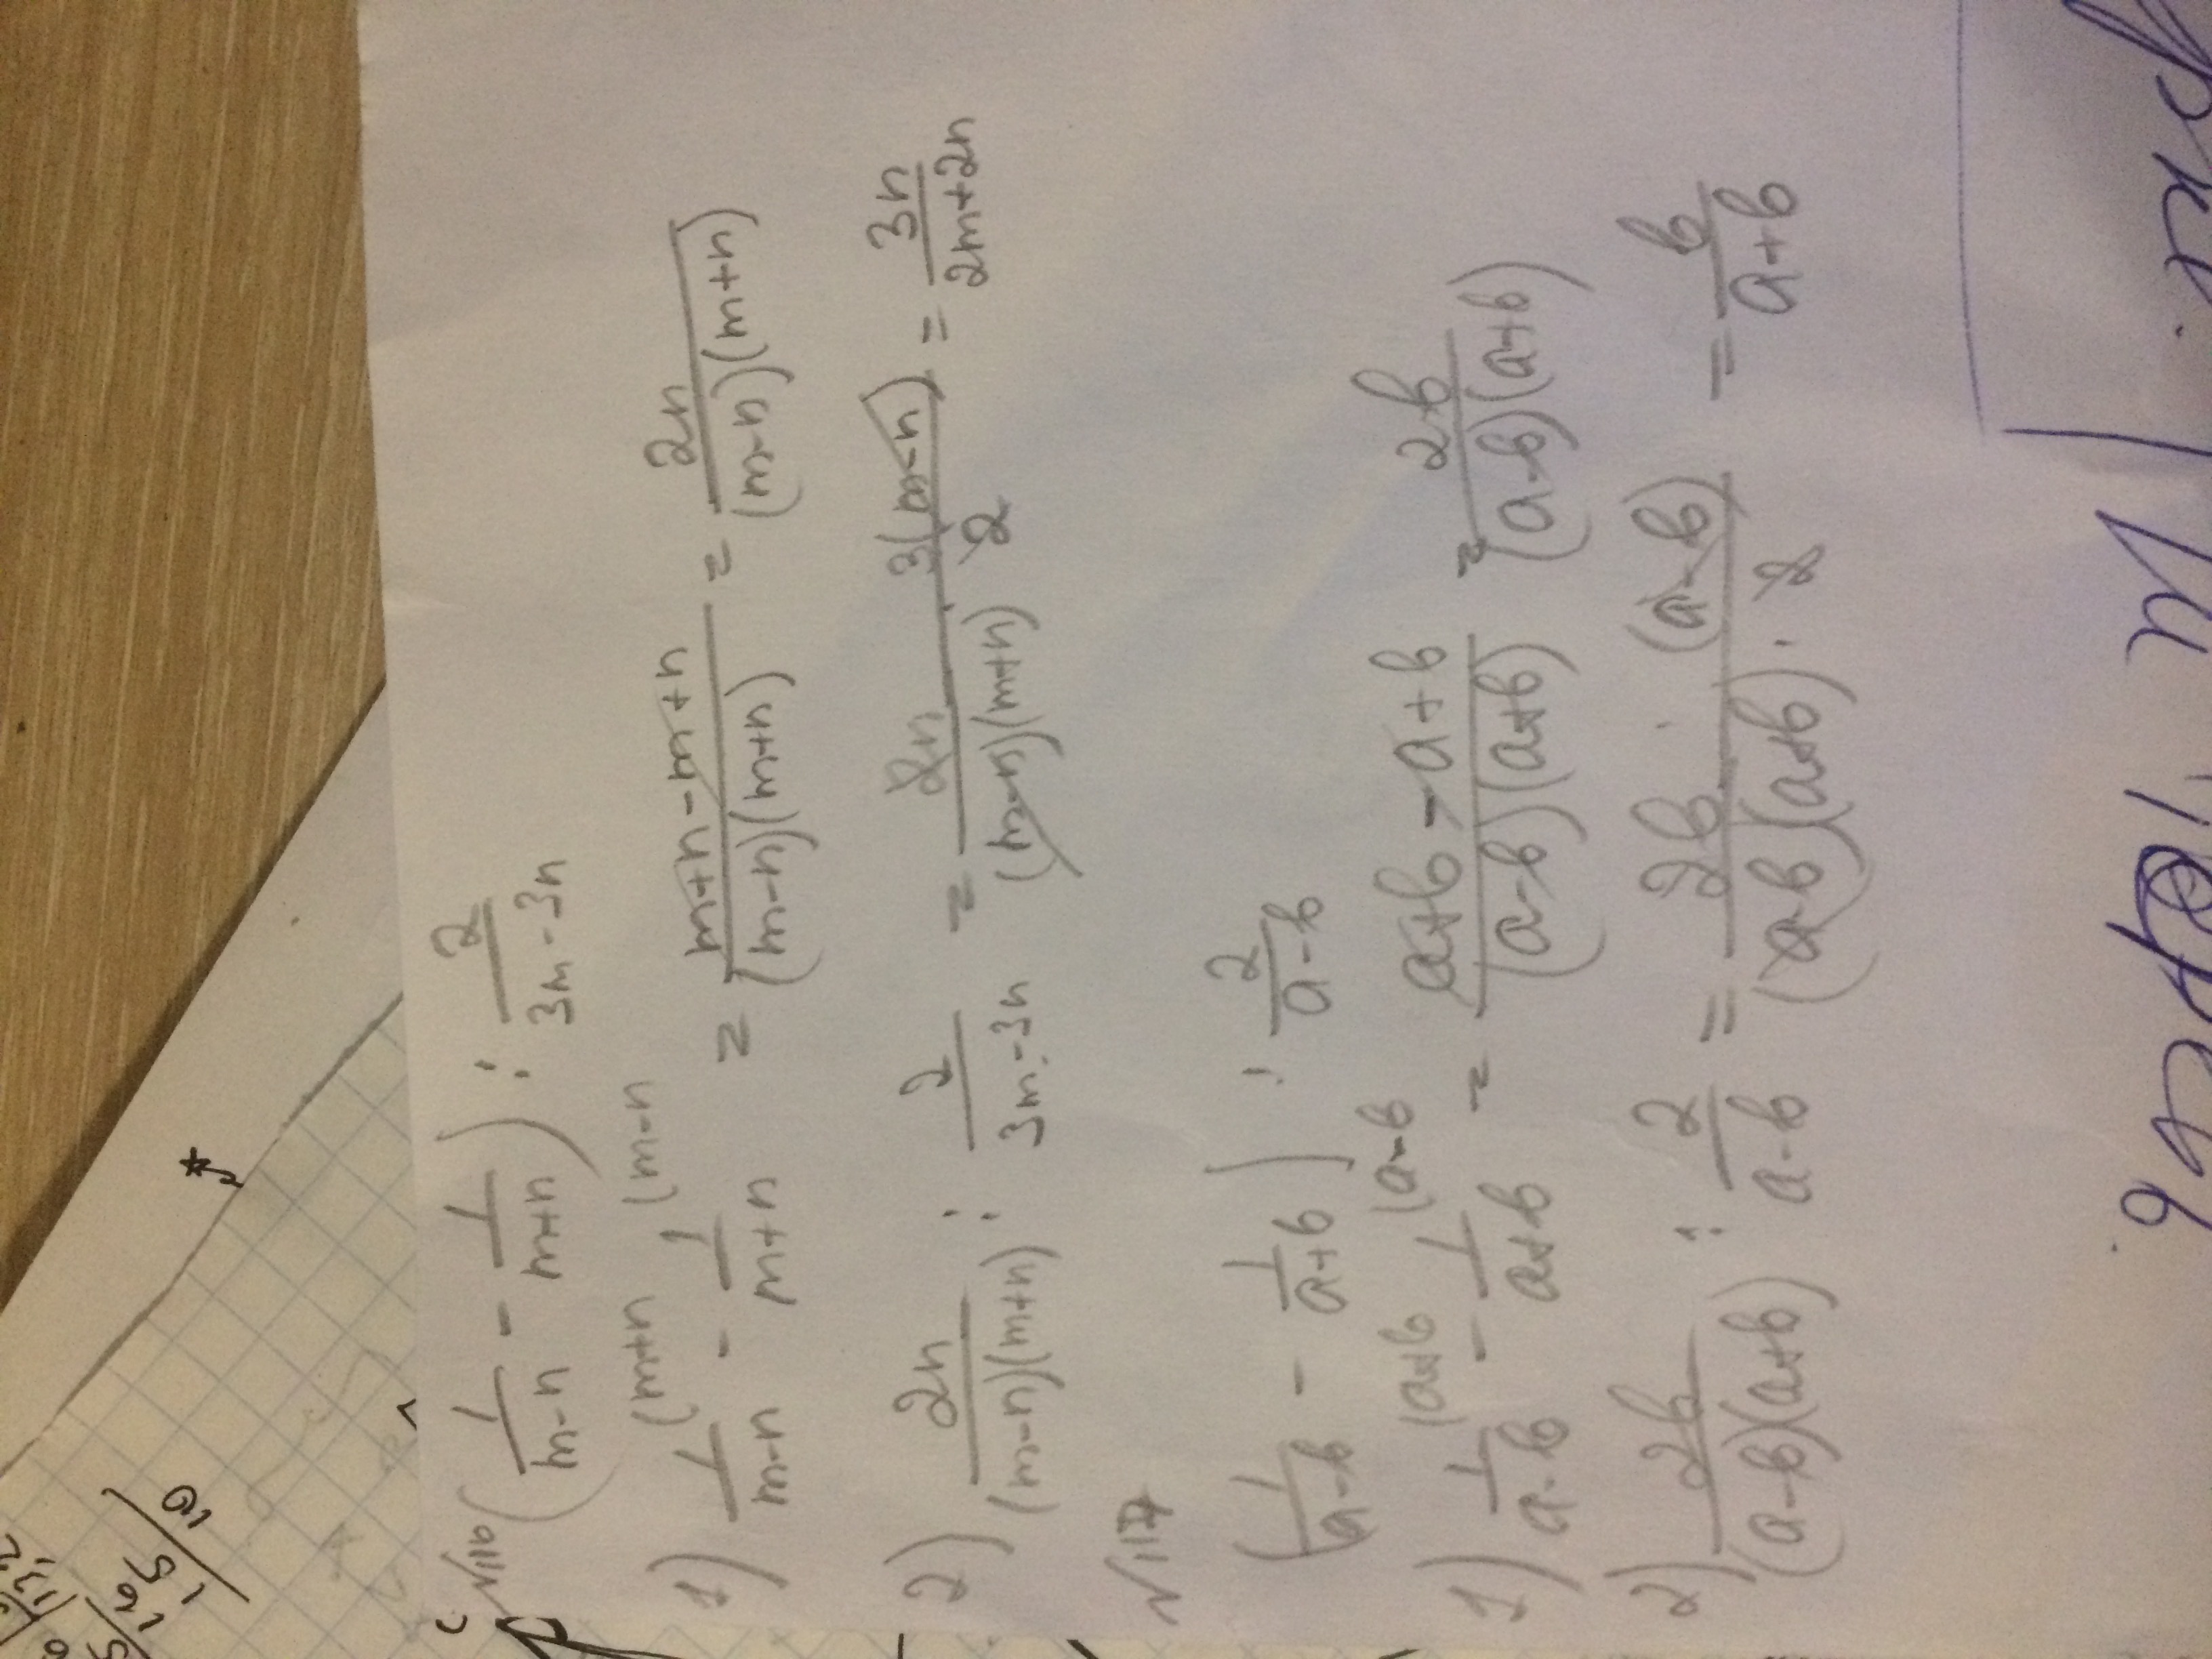 №116
(1/(m-n) - 1/(m+n)) : 2/(3m-3n)
1) 1/(m-n) (m+n - 1/(m+n) (m-n = (m+n-m+n)/((m-n)(m+n)) = 2n/((m-n)(m+n))
2) 2n/((m-n)(m+n)) : 2/(3m-3n) = 2n/((m-n)(m+n)) · 3(m-n)/2 = 3n/(2m+2n)
№117
(1/(a-b) - 1/(a+b)) : 2/(a-b)
1) 1/(a-b) (a+b - 1/(a+b) (a-b = (a+b-a+b)/((a-b)(a+b)) = 2b/((a-b)(a+b))
2) 2b/((a-b)(a+b)) : 2/(a-b) = 2b · (a-b)/((a-b)(a+b) · 2) = b/(a+b)